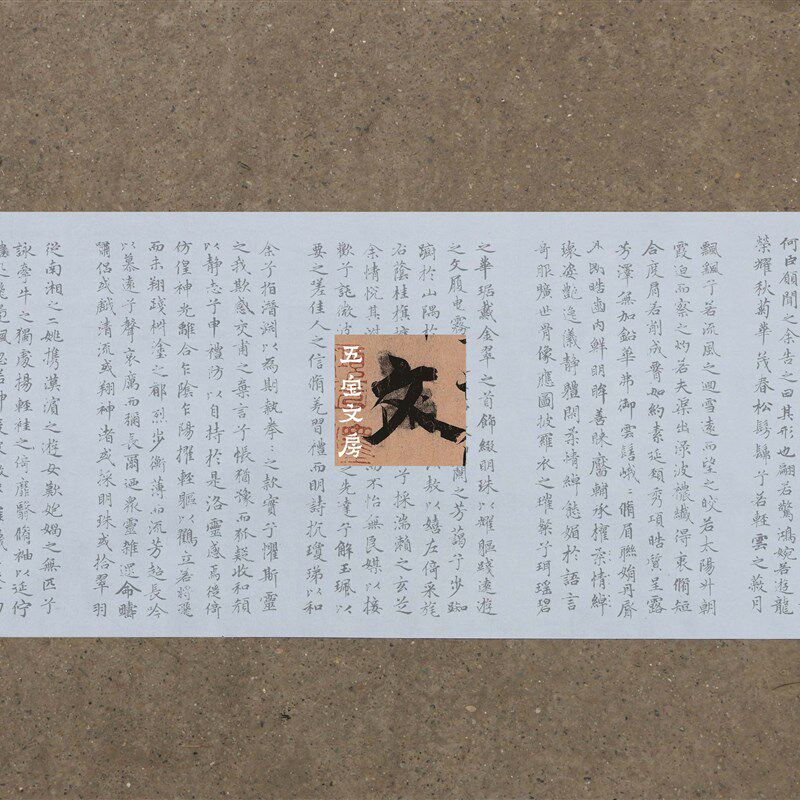 何臣願聞之余告之曰其形也翩若驚鴻婉若遊龍
榮耀秋菊華茂春松髣髴兮若輕雲之蔽月
飄飄兮若流風之迴雪遠而望之皎若太陽升朝
霞迫而察之灼若夫渠出淥波襛纖得衷脩短
合度肩若削成腰如約素延頸秀項皓質呈露
芳澤無加鉛華弗御雲髻峨〻脩眉聯娟丹脣
外朗皓齒內鮮明眸善睞靨輔承權柔情綽
瓌姿艷逸儀靜體閑柔情綽態媚於語言
奇服曠世骨像應圖披羅衣之璀粲兮珥瑤碧
之華琚戴金翠之首飾綴明珠以耀軀踐遠遊
之文履曳霧 蘭之芳藹兮步踟
躕於山隅於 敖以嬉左倚采旄
右蔭桂旗 兮採湍瀨之玄芝
余情悅其淑 而不怡無良媒以接
歡兮託微波 之先達兮解玉珮以
要之嗟佳人之信脩羌習禮而明詩抗瓊珶以和
余兮指潛淵以為期執拳〻之款實兮懼斯靈
之我欺感交甫之棄言兮悵猶豫而狐疑收和顏
以靜志兮申禮防以自持於是洛靈感焉徙倚
彷徨神光離合乍陰乍陽擢輕軀以鶴立若將飛
而未翔踐椒塗之郁烈步衡薄而流芳超長吟
以慕遠兮聲哀厲而彌長爾迺眾靈雜遝命疇
嘯侶或戲清流或翔神渚或采明珠或拾翠羽
從南湘之二姚攜漢濱之遊女歎匏媧之無匹兮
詠牽牛之獨處揚輕袿之倚靡翳脩袖以延佇
五宝文房
文